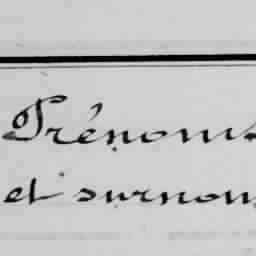 Prénoms
et surnoms